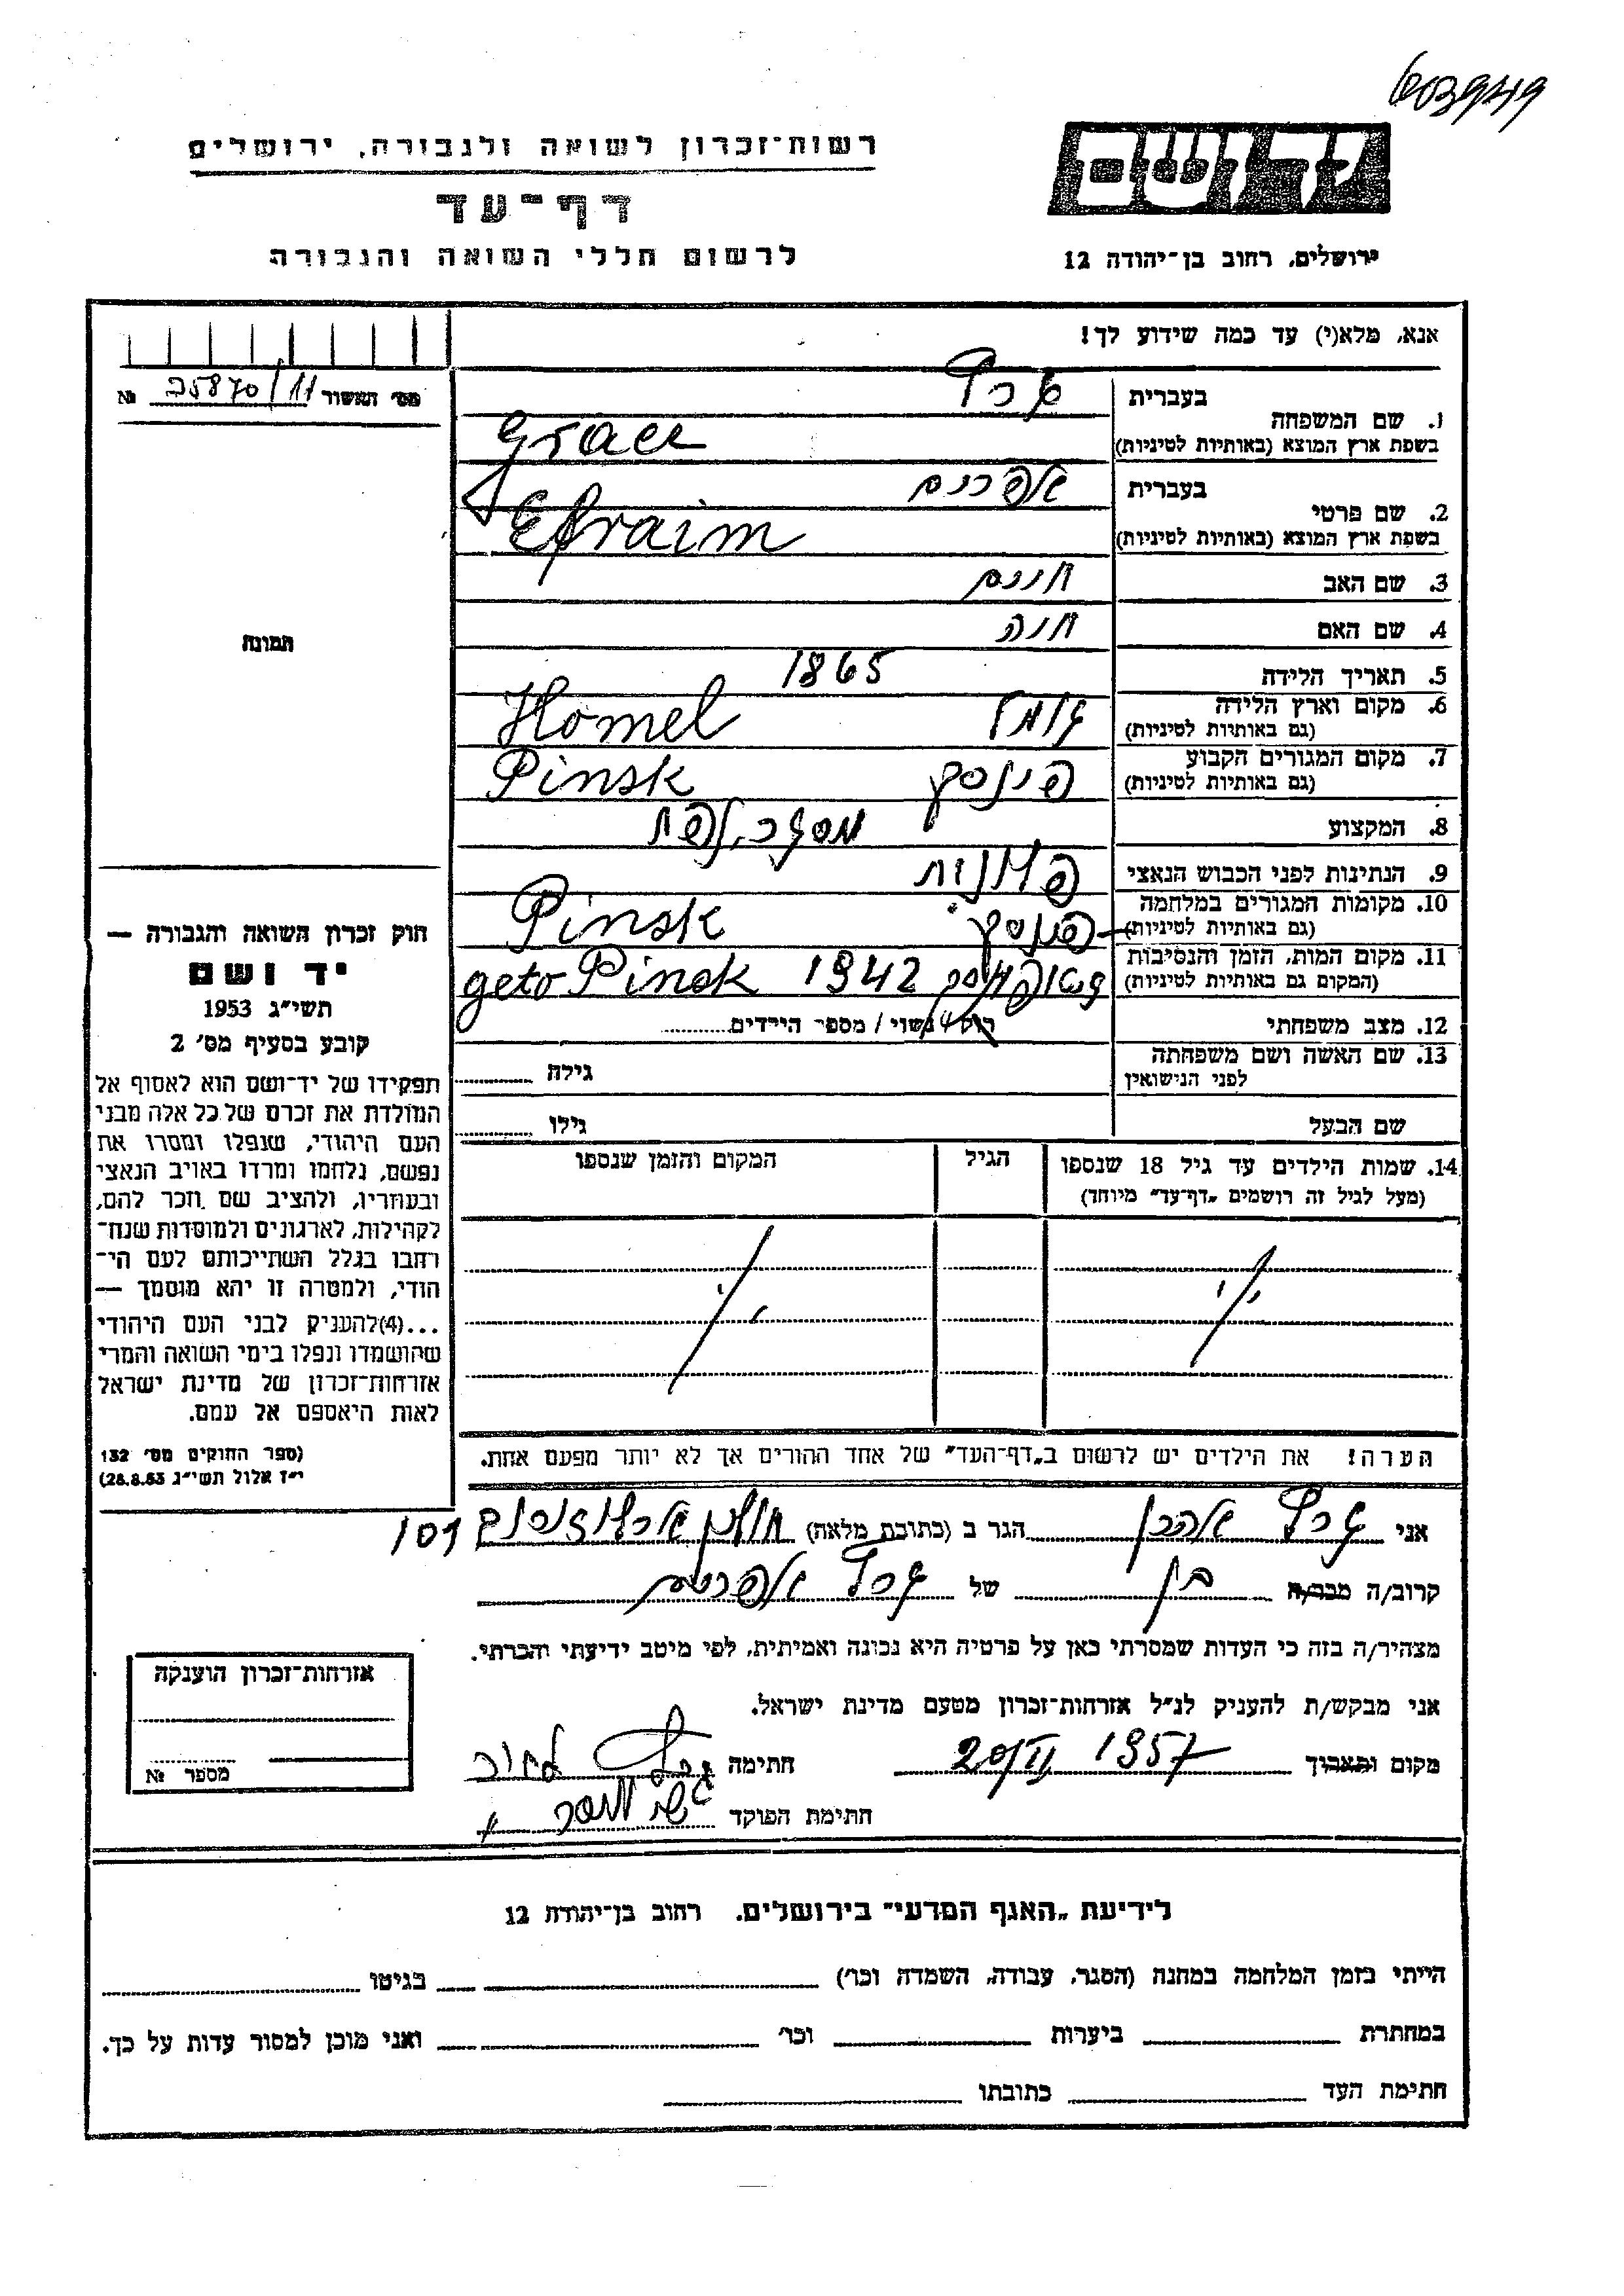 603949
רשות־זכרון לשואה ולגבורה, ירושלים
דף־עד
לרשום חללי השואה והגבורה
יד ושם
ירושלים, רחוב בן־יהודה 12
אנא, מלא(י) עד כמה שידוע לך!
מס׳ האשור 25870/11 №
בעברית
1. שם המשפחה
בשפת ארץ המוצא (באותיות לטיניות)
בעברית אפרים
2. שם פרטי
בשפת ארץ המוצא (באותיות לטיניות) Efraim
3. שם האב חיים
4. שם האם חנה
תמונה
5. תאריך הלידה 1865
6. מקום וארץ הלידה הומל Homel
(גם באותיות לטיניות)
7. מקום המגורים הקבוע פינסק Pinsk
(גם באותיות לטיניות)
8. המקצוע
9. הנתינות לפני הכבוש הנאצי
10. מקומות המגורים במלחמה Pinsk
(גם באותיות לטיניות)
11. מקום המות, הזמן והנסיבות geto Pinsk 1942
(המקום גם באותיות לטיניות)
12. מצב משפחתי רוק / נשוי / מספר הילדים
13. שם האשה ושם משפחתה
לפני הנישואין גילה
שם הבעל גילו
14. שמות הילדים עד גיל 18 שנספו הגיל המקום והזמן שנספו
(מעל לגיל זה רושמים „דף־עד״ מיוחד)
הערה! את הילדים יש לרשום ב„דף־העד״ של אחד ההורים אך לא יותר מפעם אחת.
חוק זכרון השואה והגבורה —
יד ושם
תשי״ג 1953
קובע בסעיף מס׳ 2
תפקידו של יד־ושם הוא לאסוף אל
המולדת את זכרם של כל אלה מבני
העם היהודי, שנפלו ומסרו את
נפשם, נלחמו ומרדו באויב הנאצי
ובעוזריו, ולהציב שם וזכר להם,
לקהילות, לארגונים ולמוסדות שנח־
רחבו בגלל השתייכותם לעם הי־
הודי, ולמטרה זו יהא מוסמך —
...(4)להעניק לבני העם היהודי
שהושמדו ונפלו בימי השואה והמרי
אזרחות־זכרון של מדינת ישראל
לאות היאספם אל עמם.
(ספר החוקים מס׳ 132
י״ז אלול תשי״ג 28.8.53)
אני אהרן הגר ב (כתובת מלאה) חולון 101
קרוב/ה מכר/ה בן של אפרים
מצהיר/ה בזה כי העדות שמסרתי כאן על פרטיה היא נכונה ואמיתית, לפי מיטב ידיעתי והכרתי.
אני מבקש/ת להעניק לנ״ל אזרחות־זכרון מטעם מדינת ישראל.
מקום ותאריך 20/II 1957 חתימה
חתימת הפוקד
אזרחות־זכרון הוענקה
מספר №
לידיעת „האגף המדעי״ בירושלים. רחוב בן־יהודה 12
הייתי בזמן המלחמה במחנה (הסגר, עבודה, השמדה וכו׳) בגיטו
במחתרת ביערות וכו׳ ואני מוכן למסור עדות על כך.
חתימת העד כתובתו